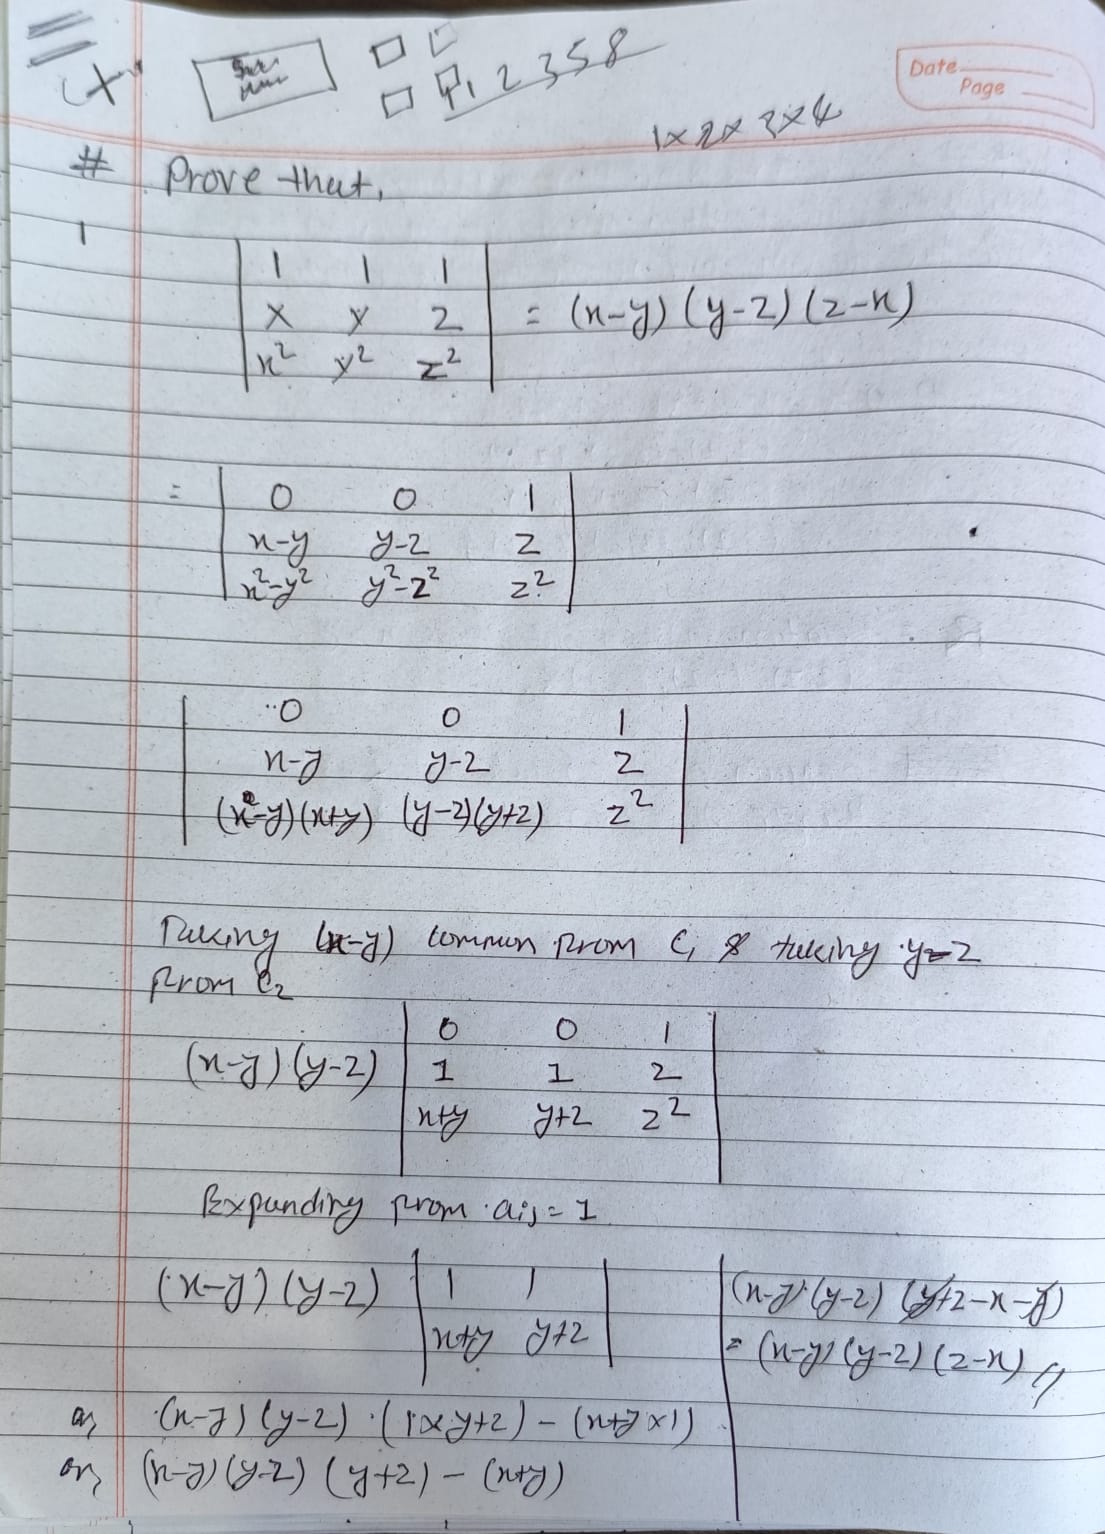 Date
Page
1 2 3 5 8
1×2×3×4
# Prove that,
1
| 1 1 1 |
| x y z | = (x-y) (y-z) (z-x)
| x² y² z² |
= | 0 0 1 |
| x-y y-z z |
| x²-y² y²-z² z² |
| 0 0 1 |
| x-y y-z z |
| (x-y)(x+y) (y-z)(y+z) z² |
Taking (x-y) common from C₁ & taking y-z
from C₂
| 0 0 1 |
(x-y) (y-z) | 1 1 z |
| x+y y+z z² |
Expanding from aij = 1
(x-y) (y-z) | 1 1 |
| x+y y+z |
or, (x-y) (y-z) · (1×y+z) - (x+y×1)
or, (x-y) (y-z) (y+z) - (x+y)
(x-y) (y-z) (y+z-x-y)
= (x-y) (y-z) (z-x) //